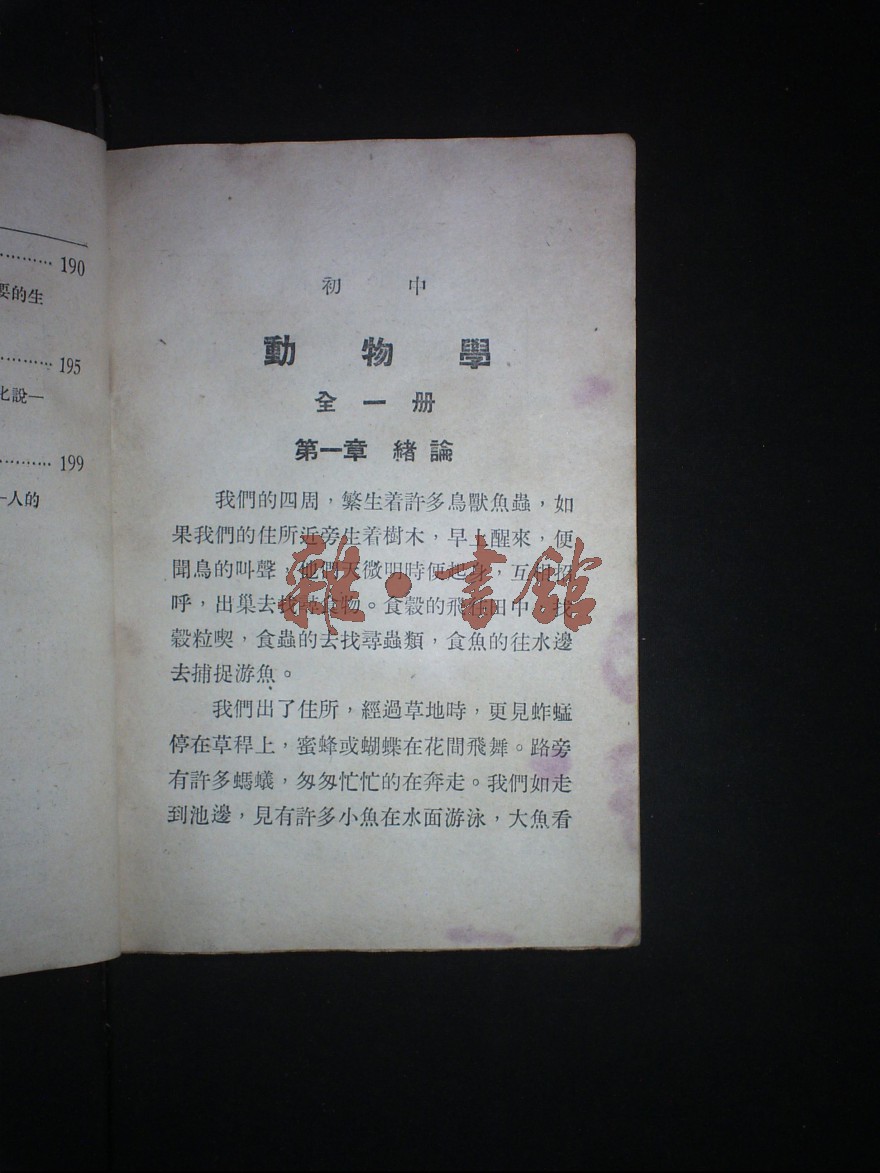 190
要的生
195
化說—
199
—人的
初 中
動 物 學
全 一 册
第一章 緒 論
我們的四周，繁生着許多鳥獸魚蟲，如
果我們的住所近旁生着樹木，早上醒來，便
聞鳥的叫聲，他們天微明時便起身，互相招
呼，出巢去找尋食物。食穀的飛往田中，找
穀粒喫，食蟲的去找尋蟲類，食魚的往水邊
去捕捉游魚。
我們出了住所，經過草地時，更見蚱蜢
停在草稈上，蜜蜂或蝴蝶在花間飛舞。路旁
有許多螞蟻，匆匆忙忙的在奔走。我們如走
到池邊，見有許多小魚在水面游泳，大魚看
雜·書館